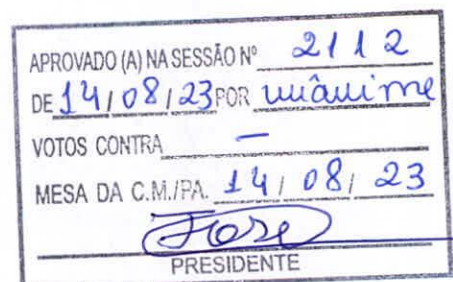 APROVADO (A) NA SESSÃO Nº 2112
DE 14/08/23 POR unânime
VOTOS CONTRA —
MESA DA C.M./PA. 14/08/23
PRESIDENTE